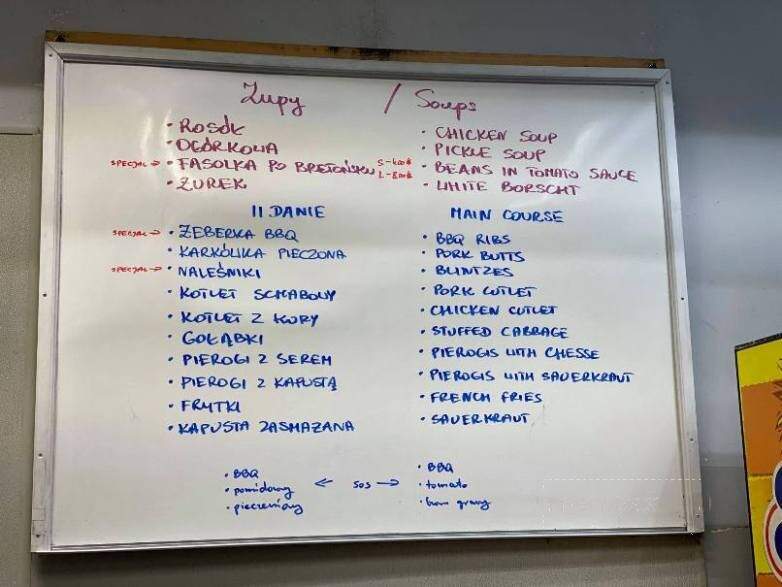 Zupy / Soups
• ROSÓŁ
• OGÓRKOWA
SPECJAL → • FASOLKA PO BRETOŃSKU S-4.00$ L-8.00$
• ŻUREK
• CHICKEN SOUP
• PICKLE SOUP
• BEANS IN TOMATO SAUCE
• WHITE BORSCHT
II DANIE
SPECJAL → • ŻEBERKA BBQ
• KARKÓLIKA PIECZONA
SPECJAL → • NALEŚNIKI
• KOTLET SCHABOWY
• KOTLET Z KURY
• GOŁĄBKI
• PIEROGI Z SEREM
• PIEROGI Z KAPUSTĄ
• FRYTKI
• KAPUSTA ZASMAŻANA
MAIN COURSE
• BBQ RIBS
• PORK BUTTS
• BLINTZES
• PORK CUTLET
• CHICKEN CUTLET
• STUFFED CABBAGE
• PIEROGIS WITH CHESSE
• PIEROGIS WITH SAUERKRAUT
• FRENCH FRIES
• SAUERKRAUT
• BBQ
• pomidowy
• pieczeniowy
← sos →
• BBQ
• tomato
• brown gravy